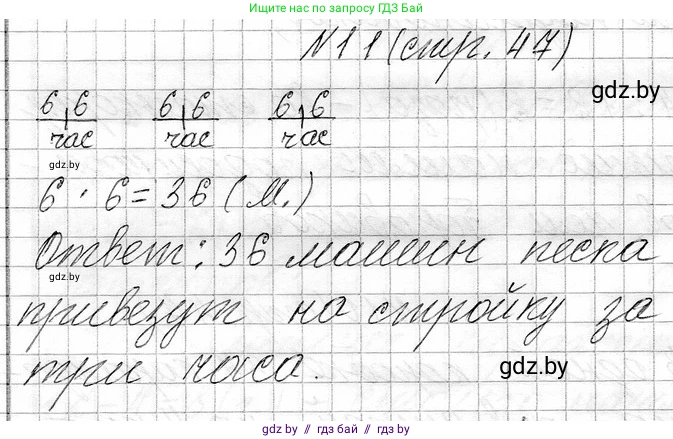 Ищите нас по запросу ГДЗ БАЙ
№11 (стр. 47)
gdz.by
6 6 6 6 6 6
час час час
gdz.by
6 · 6 = 36 (м.)
Ответ: 36 машин песка
gdz.by
привезут на стройку за
три часа.
gdz.by
gdz.by // гдз бай // гдз by